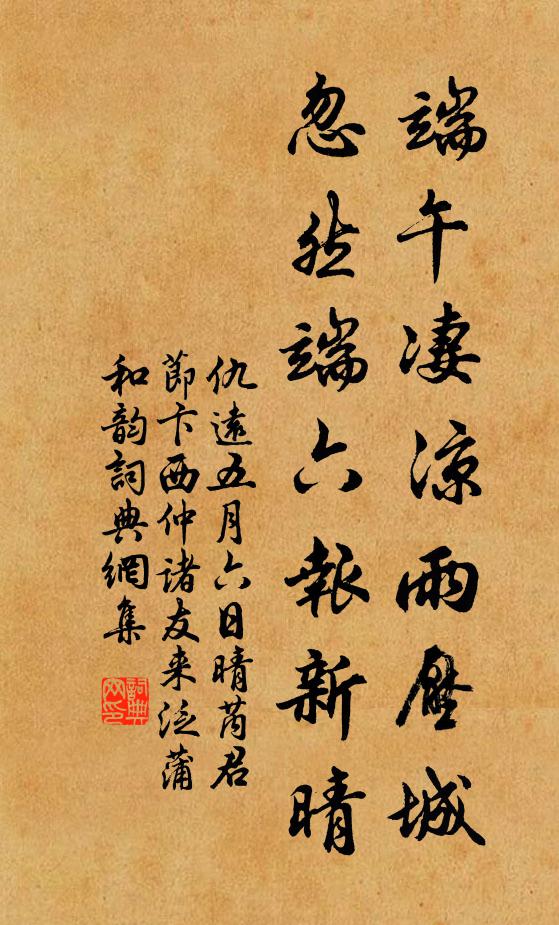 端午凄涼雨壓城
忽然端六報新晴
仇遠五月六日晴芮君
節卞西仲諸友来泛蒲
和韵詞典網集
詞典网印